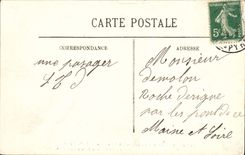 CARTE POSTALE
CORRESPONDANCE
ADRESSE
une passager
Monsieur
demolon
Roche
par les ponts de
Maine et Loire
5